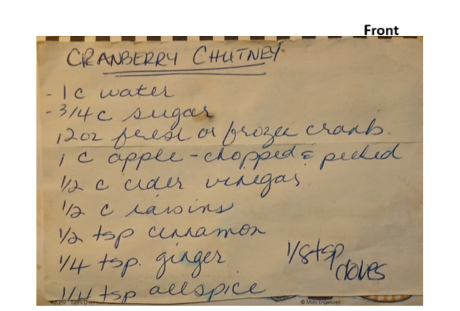 Front
CRANBERRY CHUTNEY
- 1 c water
- 3/4 c sugar
12 oz fresh or frozen cranb.
1 c apple - chopped & peeled
1/2 c cider vinegar
1/2 c raisins
1/2 tsp cinnamon
1/4 tsp. ginger
1/8 tsp cloves
1/4 tsp allspice